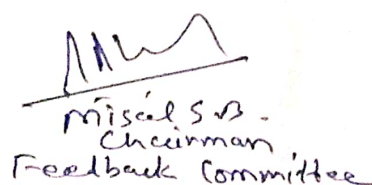 Miscal S.B.
Chairman
Feedback Committee